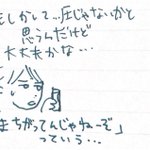 もしかして…圧じゃないかと
思うんだけど
大丈夫かな…
まちがってんじゃねーぞ」
っていう…